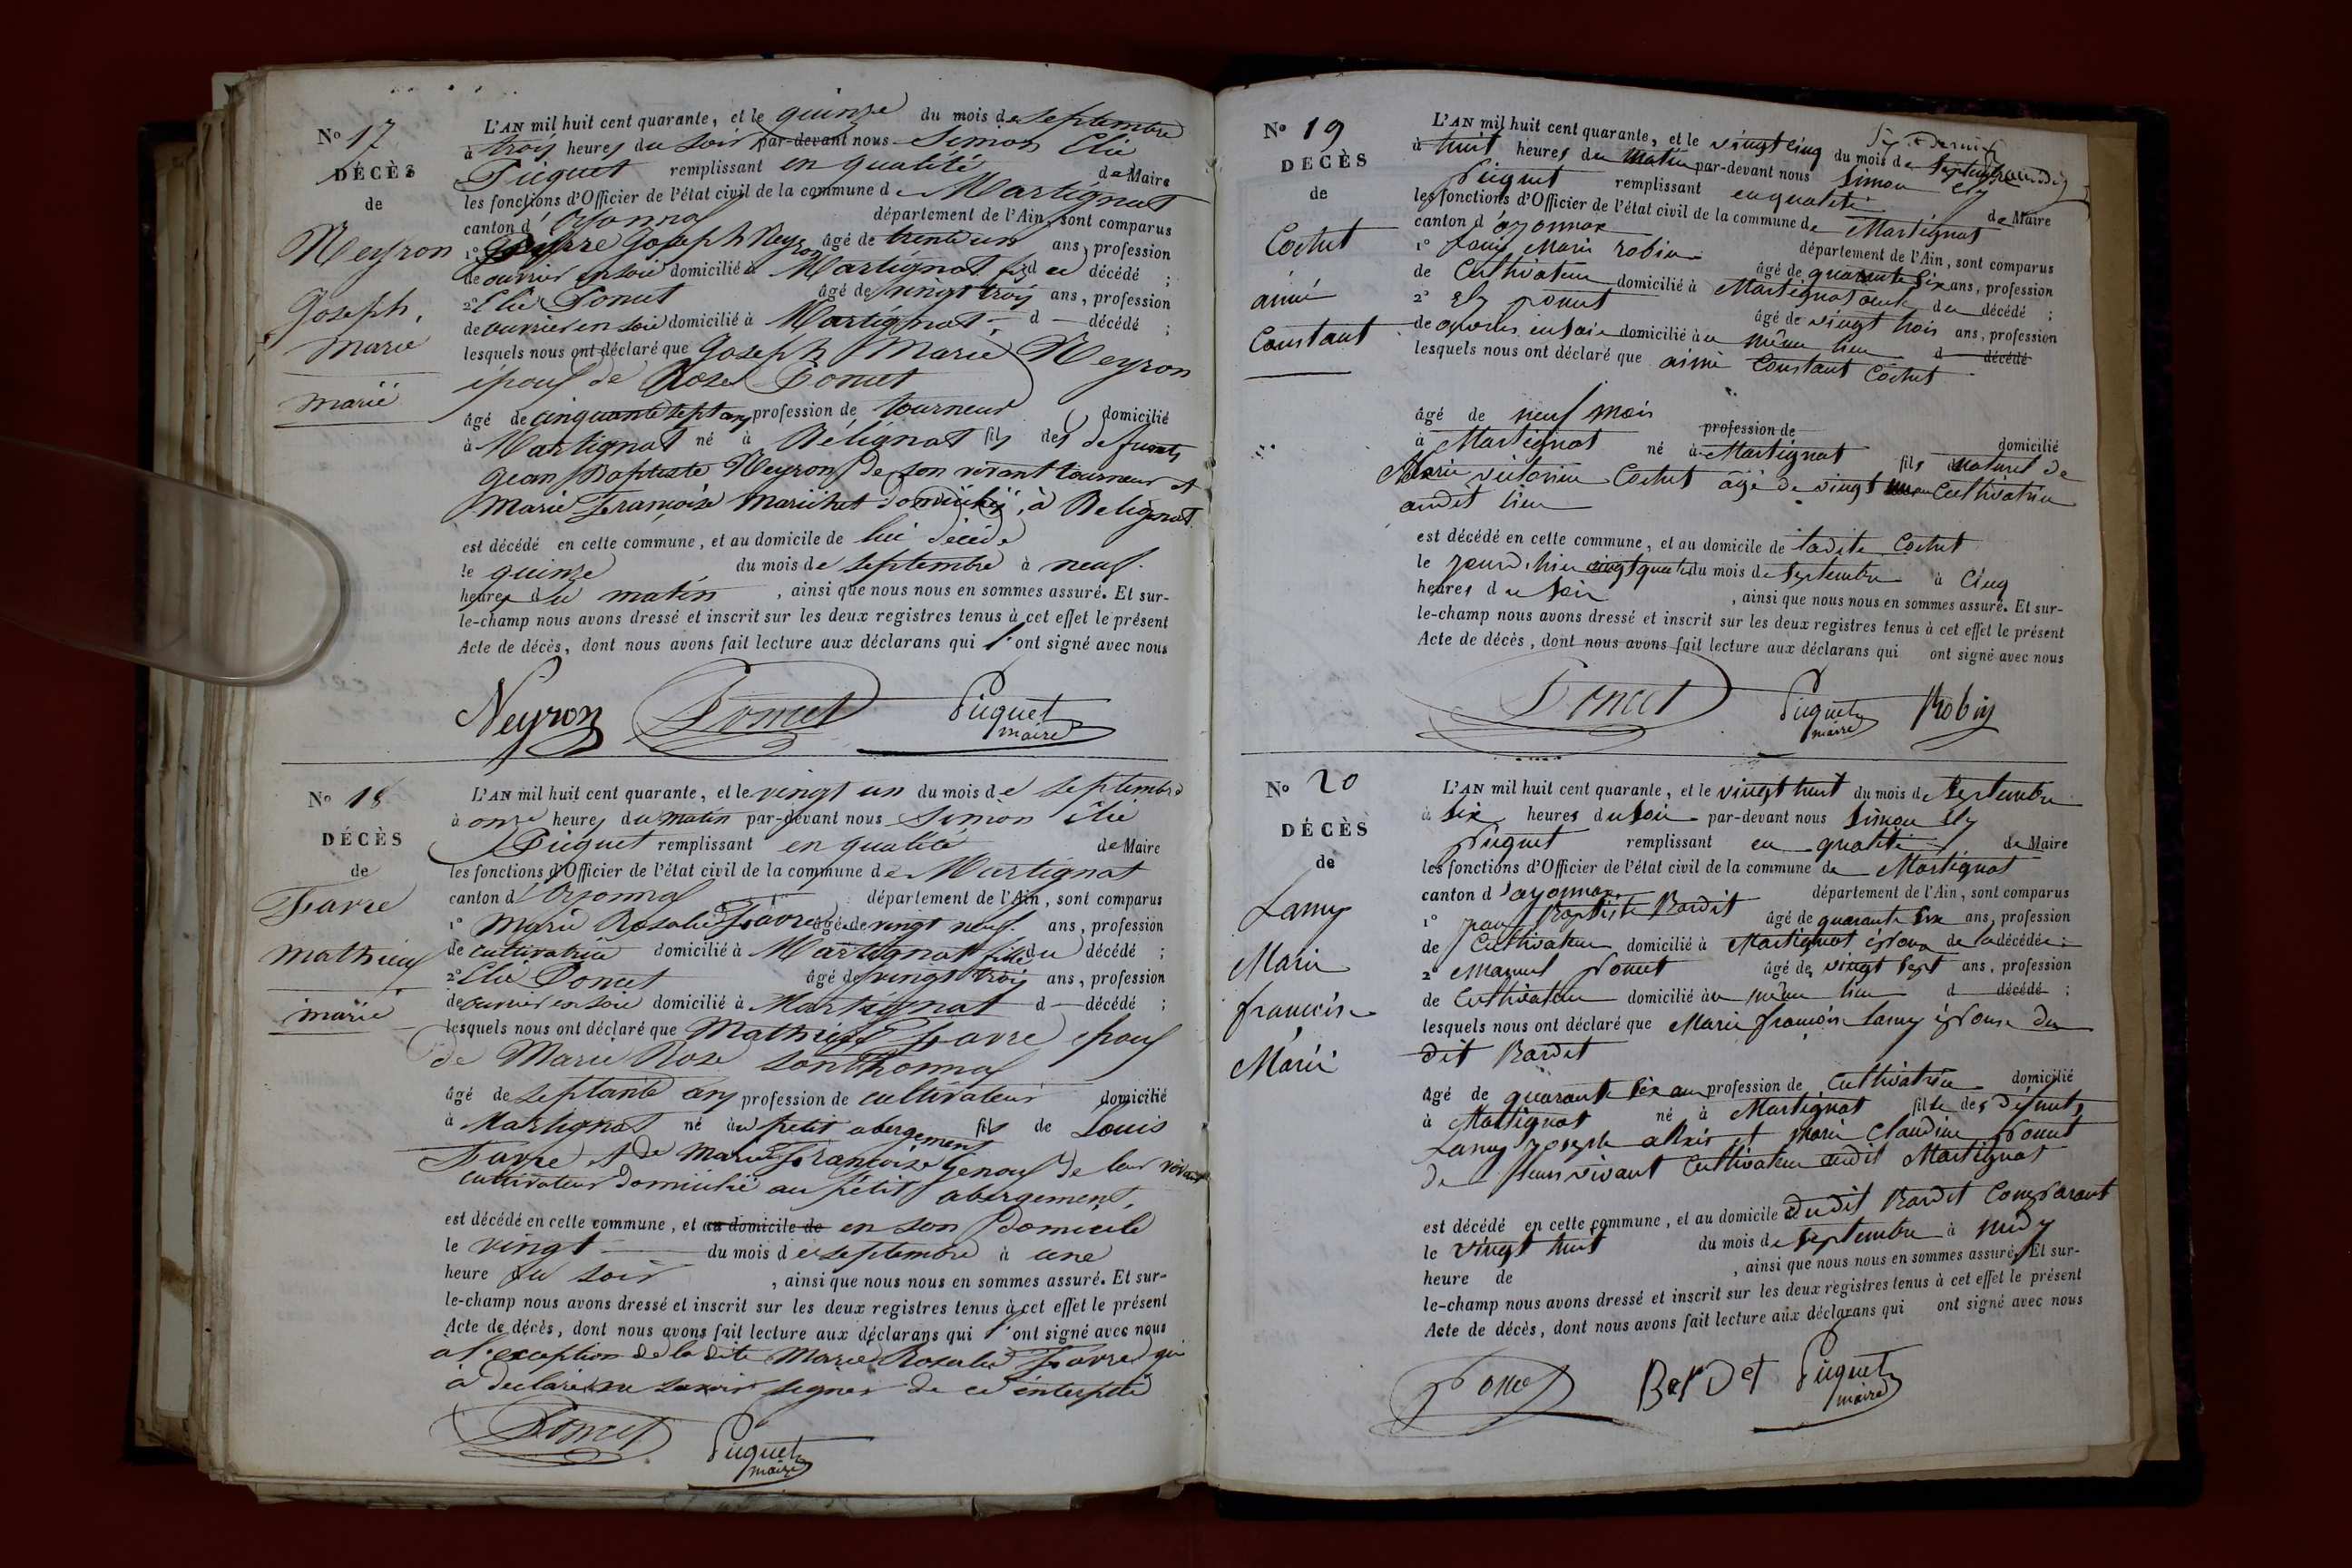 No 17
DÉCÈS
de
Neyron
Joseph,
Marie
marié
L'AN mil huit cent quarante, et le quinze du mois de septembre
à trois heures du soir par-devant nous Simon Elie
Piquet remplissant en qualité de Maire
les fonctions d'Officier de l'état civil de la commune de Martignat
canton d'Oyonnax département de l'Ain, sont comparus
1o Joseph Neyron âgé de trente un ans, profession
de ouvrier en soie domicilié à Martignat fils du décédé ;
2o Elie Poncet âgé de vingt trois ans, profession
de ouvrier en soie domicilié à Martignat, d décédé ;
lesquels nous ont déclaré que Joseph Marie Neyron
époux de Rose Poncet
âgé de cinquante sept ans profession de tourneur domicilié
à Martignat né à Bélignat fils des defunts
Jean Baptiste Neyron de son vivant tourneur et
Marie Françoise Marichet domiciliés à Belignat
est décédé en cette commune, et au domicile de lui décédé
le quinze du mois de septembre à neuf
heures du matin, ainsi que nous nous en sommes assuré. Et sur-
le-champ nous avons dressé et inscrit sur les deux registres tenus à cet effet le présent
Acte de décès, dont nous avons fait lecture aux déclarans qui l'ont signé avec nous
Neyron Poncet Piquet
maire
No 18
DÉCÈS
de
Favre
Mathieu
marié
L'AN mil huit cent quarante, et le vingt un du mois de septembre
à onze heures du matin par-devant nous Simon Elie
Piquet remplissant en qualité de Maire
les fonctions d'Officier de l'état civil de la commune de Martignat
canton d'Oyonnax département de l'Ain, sont comparus
1o Marie Rosalie Favre âgé de vingt neuf ans, profession
de cultivatrice domicilié à Martignat fille du décédé ;
2o Elie Poncet âgé de vingt trois ans, profession
de ouvrier en soie domicilié à Martignat d décédé ;
lesquels nous ont déclaré que Mathieu Favre époux
de Marie Rose Sonthonnax
âgé de septante ans profession de cultivateur domicilié
à Martignat né au petit abergement fils de Louis
Favre et de Marie Françoise Genoux de leur vivant
cultivateur domicilié au petit abergement,
est décédé en cette commune, et au domicile de en son domicile
le vingt du mois de septembre à une
heure du soir, ainsi que nous nous en sommes assuré. Et sur-
le-champ nous avons dressé et inscrit sur les deux registres tenus à cet effet le présent
Acte de décès, dont nous avons fait lecture aux déclarans qui l'ont signé avec nous
a l'exception de la dite Marie Rosalie Favre qui
a déclaré ne savoir signer de ce interpellé
Poncet Piquet
maire
No 19
DÉCÈS
de
Cochet
aimé
Constant
L'AN mil huit cent quarante, et le vingt cinq du mois de Septembre
à huit heures du matin par-devant nous Simon Ely
Piquet remplissant en qualité de Maire
les fonctions d'Officier de l'état civil de la commune de Martignat
canton d'oyonnax département de l'Ain, sont comparus
1o Louis Marie robin âgé de quarante six ans, profession
de Cultivateur domicilié à Martignat oncle du décédé ;
2o Ely poncet âgé de vingt trois ans, profession
de ouvrier en soie domicilié au même lieu d décédé
lesquels nous ont déclaré que aimé Constant Cochet
âgé de neuf mois profession de domicilié
à Martignat né à Martignat fils naturel de
Marie victorine Cochet âgé de vingt Cultivatrice
audit lieu
est décédé en cette commune, et au domicile de ladite Cochet
le jour d'hier vingt quatre du mois de Septembre à Cinq
heures du soir, ainsi que nous nous en sommes assuré. Et sur-
le-champ nous avons dressé et inscrit sur les deux registres tenus à cet effet le présent
Acte de décès, dont nous avons fait lecture aux déclarans qui ont signé avec nous
Poncet Piquet Robin
maire
No 20
DÉCÈS
de
Lamy
Marie
françoise
Mariée
L'AN mil huit cent quarante, et le vingt huit du mois de Septembre
à six heures du soir par-devant nous Simon Ely
Piquet remplissant en qualité de Maire
les fonctions d'Officier de l'état civil de la commune de Martignat
canton d'oyonnax département de l'Ain, sont comparus
1o jean Baptiste Bardet âgé de quarante six ans, profession
de Cultivateur domicilié à Martignat époux de la décédée ;
2o Manuel poncet âgé de vingt sept ans, profession
de Cultivateur domicilié au même lieu d décédé ;
lesquels nous ont déclaré que Marie françoise lamy épouse du
dit Bardet
âgé de quarante six ans profession de Cultivatrice domicilié
à Martignat né à Martignat fille des défunts
Lamy joseph alexis et marie Claudine poncet
de leur vivant Cultivateur audit Martignat
est décédé en cette commune, et au domicile dudit Bardet Comparant
le vingt huit du mois de septembre à midy
heure de, ainsi que nous nous en sommes assuré. Et sur-
le-champ nous avons dressé et inscrit sur les deux registres tenus à cet effet le présent
Acte de décès, dont nous avons fait lecture aux déclarans qui ont signé avec nous
Ponce BarDet Piquet
maire